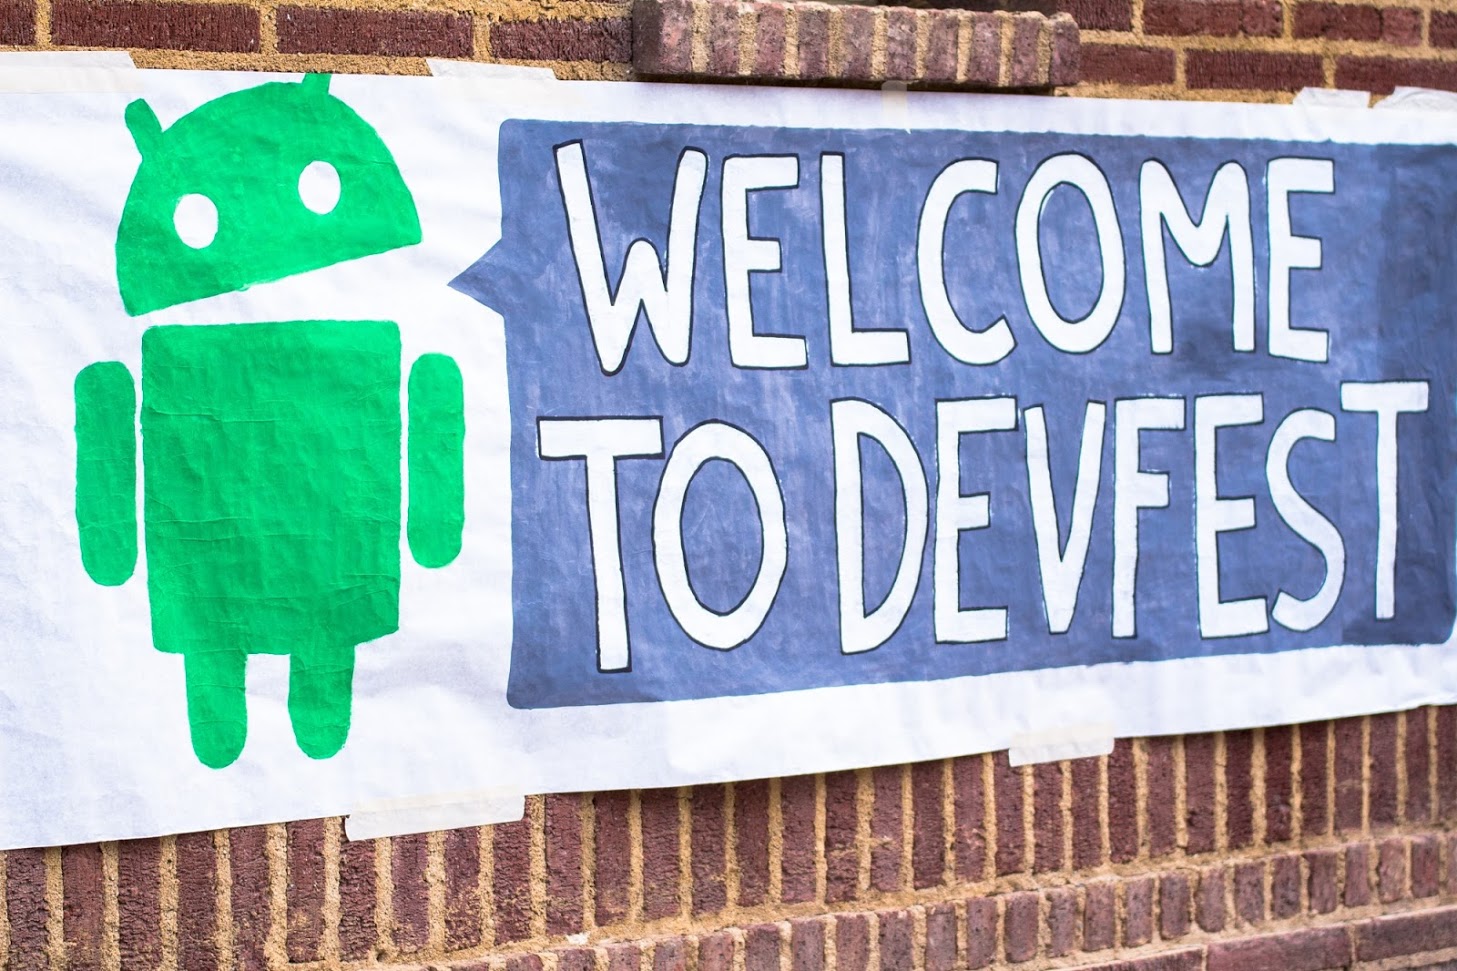 WELCOME
TO DEVFEST